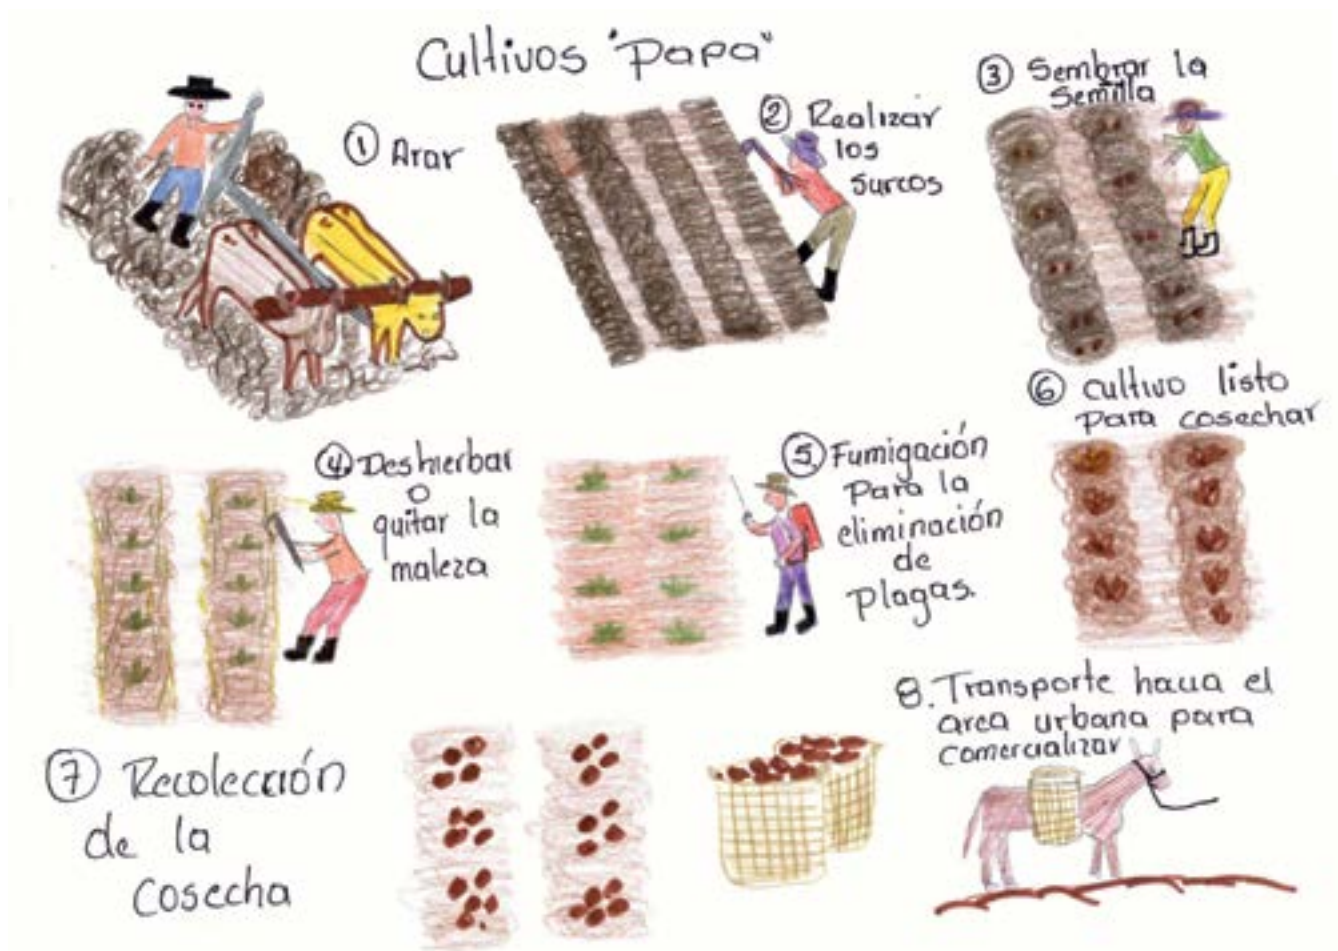 Cultivos "Papa"
① Arar
② Realizar
los
surcos
③ Sembrar la
Semilla
④. Deshierbar
o
quitar la
maleza
⑤ Fumigación
Para la
eliminación
de
Plagas.
⑥ cultivo listo
Para cosechar
⑦ Recolección
de la
Cosecha
8. Transporte hacia el
area urbana para
comercializar